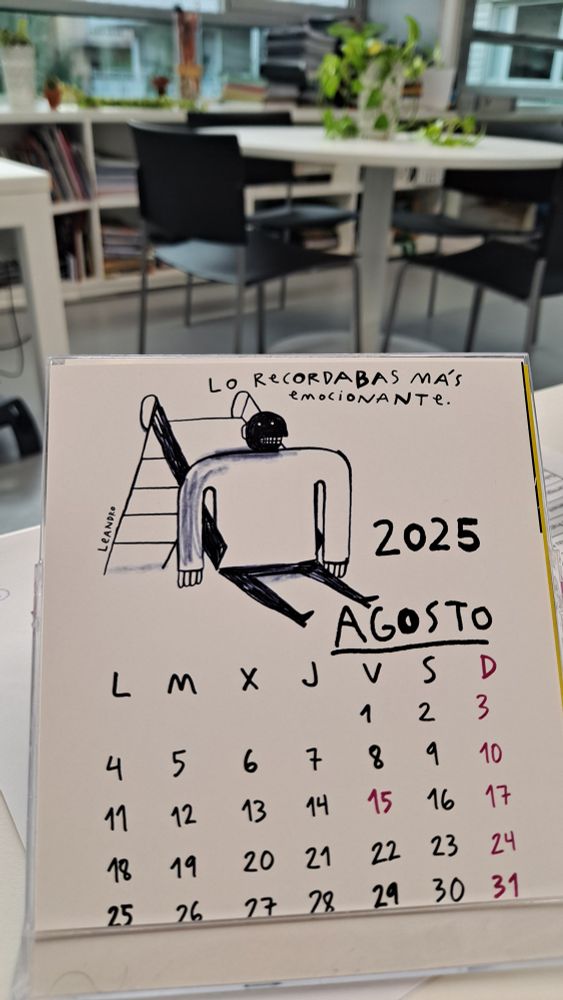 LO RECORDABAS MÁS
EMOCIONANTE.
LEANDRO
2025
AGOSTO
L M X J V S D
1 2 3
4 5 6 7 8 9 10
11 12 13 14 15 16 17
18 19 20 21 22 23 24
25 26 27 28 29 30 31